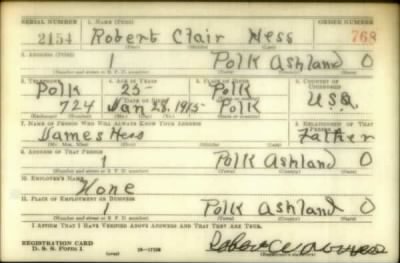 SERIAL NUMBER 1. NAME (Print) ORDER NUMBER
2154 Robert Clair Hess 768
(First) (Middle) (Last)
2. ADDRESS (Print)
1 Polk Ashland O
(Number and street or R. F. D. number) (Town) (County) (State)
3. TELEPHONE 4. AGE IN YEARS 5. PLACE OF BIRTH 6. COUNTRY OF CITIZENSHIP
Polk 25 Polk
DATE OF BIRTH
724 Jan 28, 1915 Polk U.S.A.
(Exchange) (Number) (Mo.) (Day) (Yr.) (State or country)
7. NAME OF PERSON WHO WILL ALWAYS KNOW YOUR ADDRESS 8. RELATIONSHIP OF THAT PERSON
James Hess Father
(Mr., Mrs., Miss) (First) (Middle) (Last)
9. ADDRESS OF THAT PERSON
1 Polk Ashland O
(Number and street or R. F. D. number) (Town) (County) (State)
10. EMPLOYER'S NAME
None
11. PLACE OF EMPLOYMENT OR BUSINESS
1 Polk Ashland O
(Number and street or R. F. D. number) (Town) (County) (State)
I AFFIRM THAT I HAVE VERIFIED ABOVE ANSWERS AND THAT THEY ARE TRUE.
REGISTRATION CARD
D. S. S. Form 1 (over) 16-17105